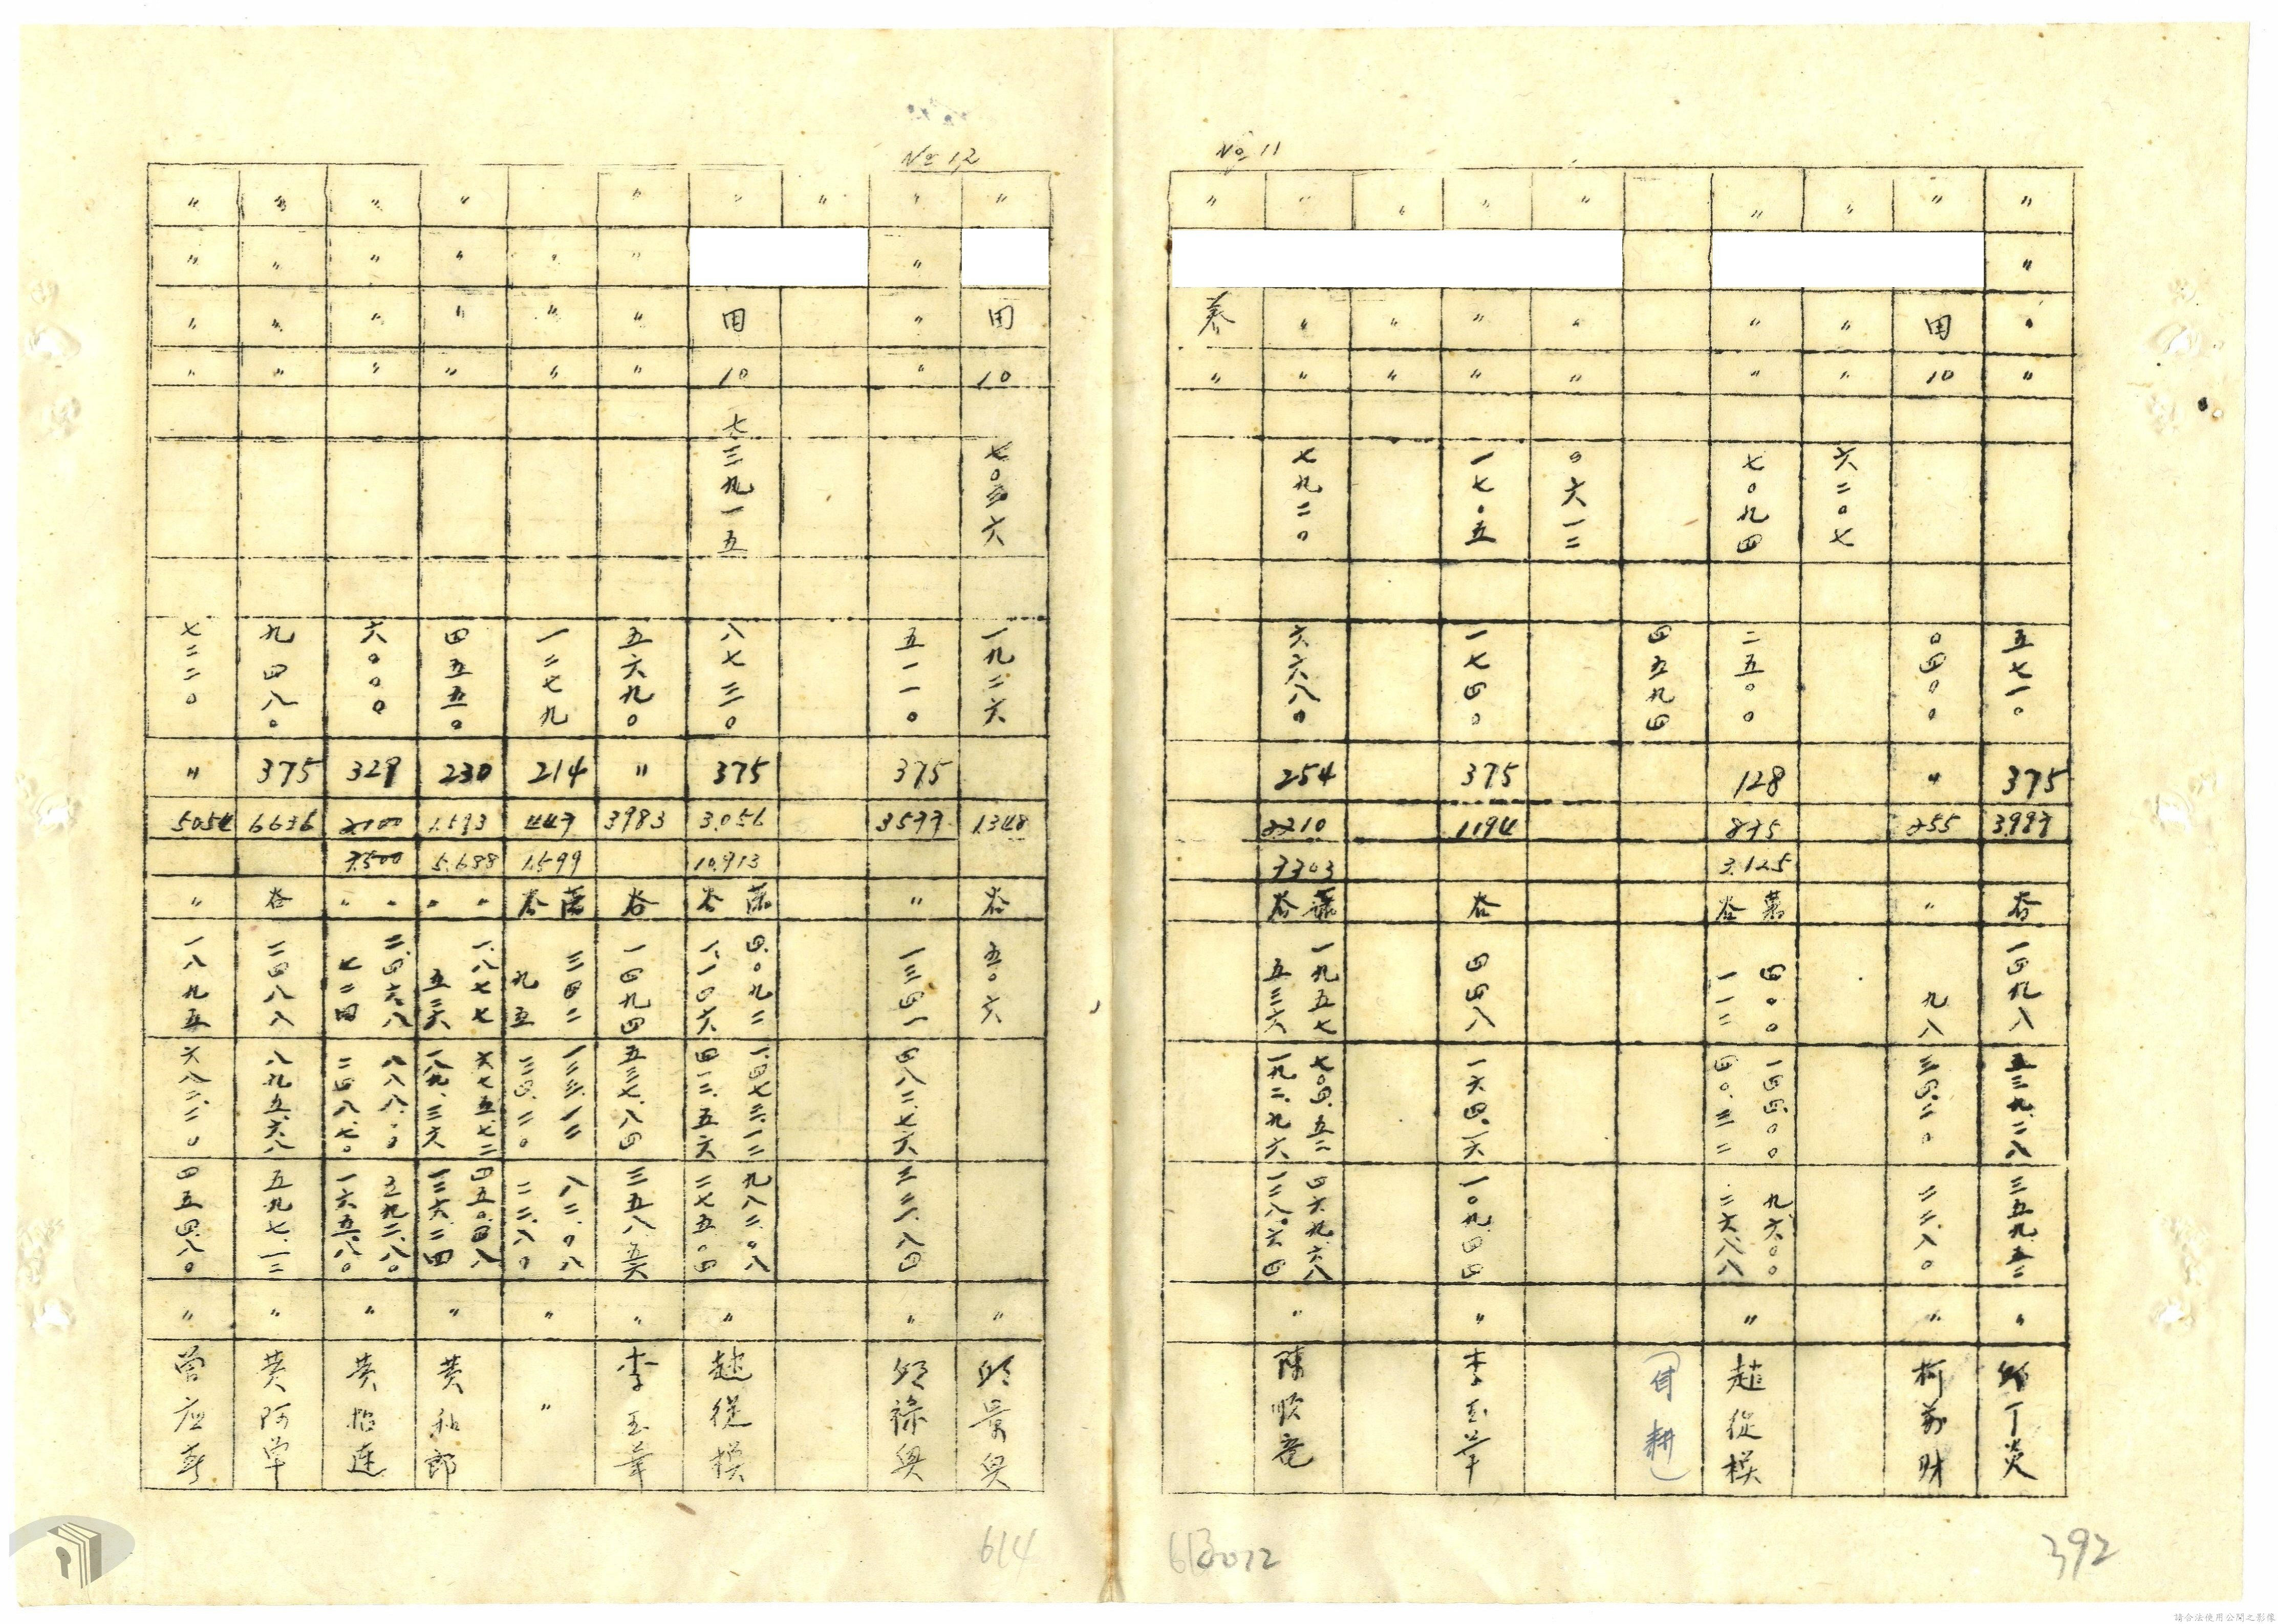 No 11
〃 〃 〃 〃 五七一〇 375 3.987 谷 一四九八 五三九.二八 三五九.五二 〃 邱丁炎
〃 田 10 〇四〇〇 〃 255 〃 九八 三四.二〇 二二.八〇 〃 柯萬財
〃 〃 〃 六二〇七
〃 〃 〃 七〇九四 二五〇〇 128 875 3.125 蓬 四〇〇 一四四.〇〇 九六.〇〇 谷 一一二 四〇.三二 二六.八八 〃 趙從模
四五九四 (自耕)
〃 〃 〃 〇六一二
〃 〃 〃 一七〇五 一七四〇 375 1194 谷 四四八 一六四.一六 一〇九.四四 〃 李玉華
〃 〃 〃
〃 〃 〃 七九二〇 六六八〇 254 2210 7703 蓬 一九五七 七〇四.五二 四六九.六八 谷 五三六 一九二.九六 一二八.六四 〃 陳順意
〃 養 〃
613 0012
392
No 12
〃 田 10 七〇三六 一九二六 1.348 谷 五〇六 〃 邱景興
〃 〃 〃 〃 五一一〇 375 3577 〃 一三四一 四八二.七六 三二一.八四 〃 邱祿興
〃
〃 田 10 七三九一五 八七三〇 375 3.056 10.913 蓬 四.〇九二 一.四七三.一二 九八二.〇八 谷 一.一四六 四一二.五六 二七五.〇四 〃 趙從模
〃 〃 〃 〃 五六九〇 〃 3983 谷 一四九四 五三七.八四 三五八.五六 〃 李玉華
〃 〃 〃 一二七九 214 447 1.599 蓬 三四二 一二三.一二 八二.〇八 谷 九五 三四.二〇 二二.八〇 〃 〃
〃 〃 〃 〃 四五五〇 230 1.593 5.688 〃 一.八七七 六七五.七二 四五〇.四八 〃 五二六 一八九.三六 一二六.二四 〃 黄和郎
〃 〃 〃 〃 六〇〇〇 329 2100 7.500 〃 二.四六八 八八八.〇 五九二.八〇 〃 七二四 二四八.七〇 一六五.八〇 〃 黄招連
〃 〃 〃 〃 九四八〇 375 6636 谷 二四八八 八九五.六八 五九七.一二 〃 黄阿草
〃 〃 〃 〃 七二二〇 〃 5054 〃 一八九五 六八二.二〇 四五四.八〇 〃 曾應壽
614
請合法使用公開之影像